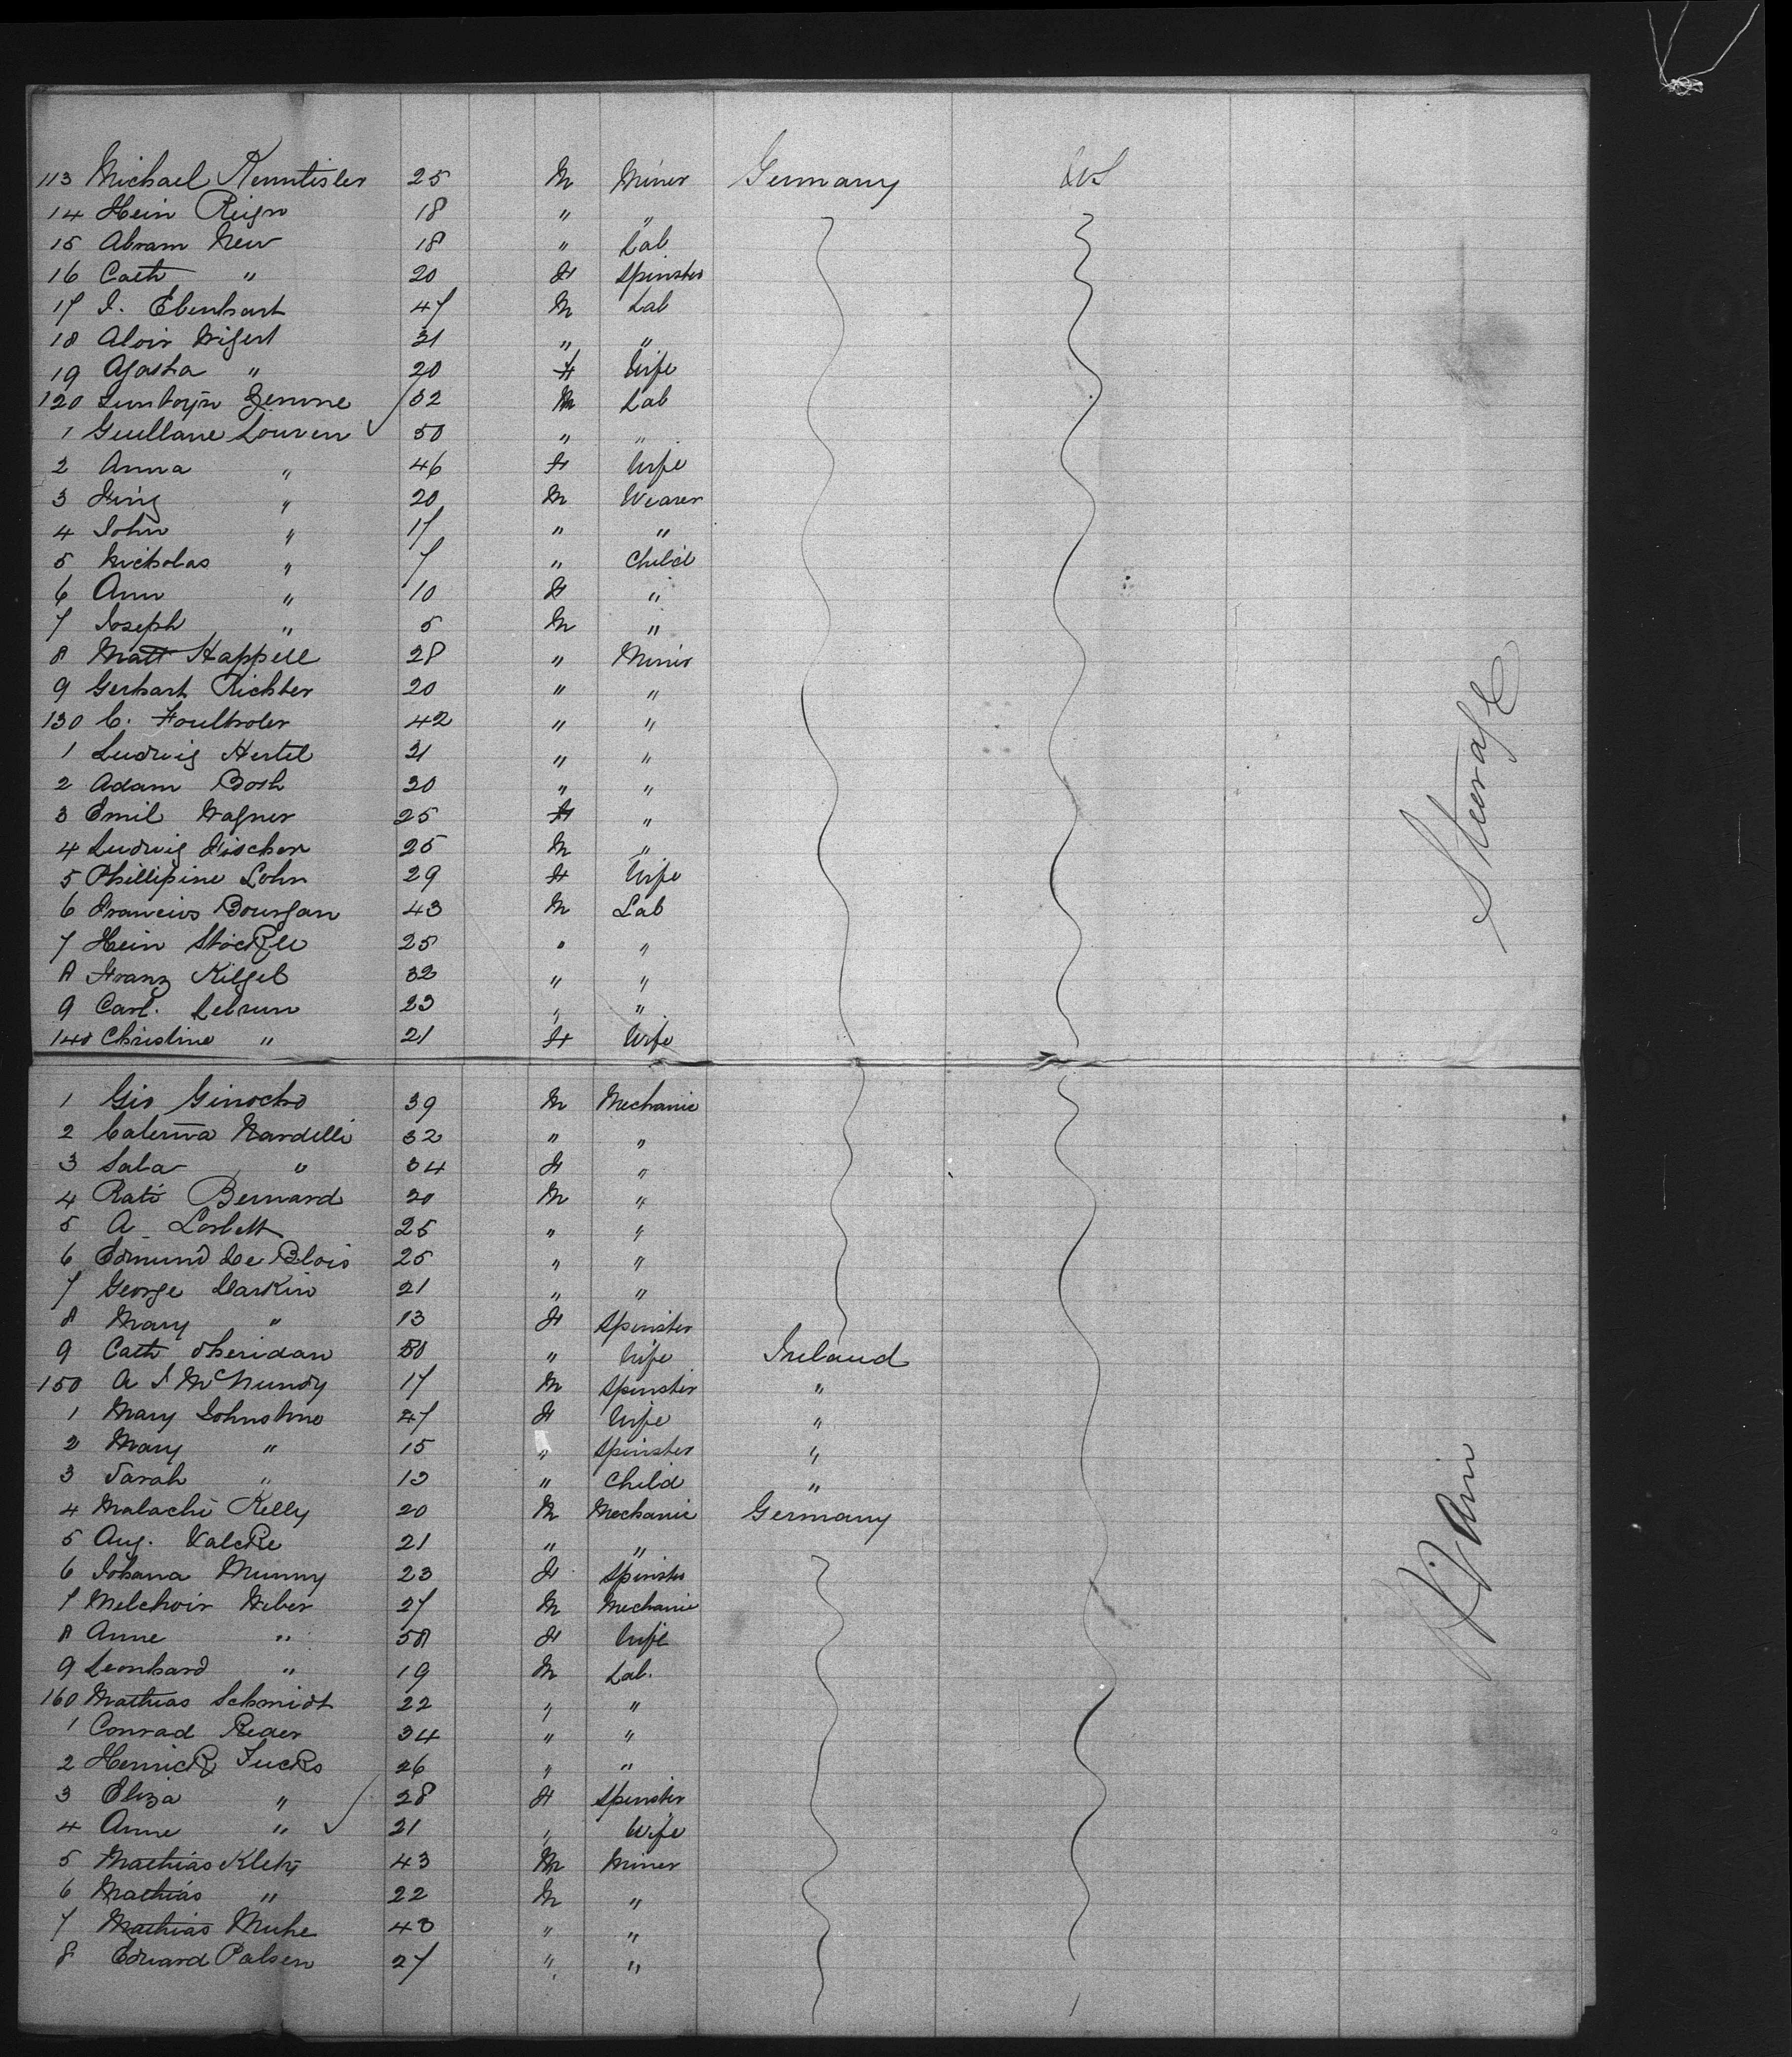 113 Michael Kenntisler 25 M Miner Germany
14 Hein Reign 18 " "
15 Abram New 18 " Lab
16 Cath " 20 F Spinster
17 J. Ebenhart 47 M Lab
18 Alois Wigert 31 " "
19 Agatha " 20 F Wife
120 32 M Lab
1 Guellane Louven 50 " "
2 Anna " 46 F Wife
3 " 20 M Weaver
4 John " 17 " "
5 Nicholas " 7 " Child
6 Ann " 10 F "
7 Joseph " 5 M "
8 Matt Happell 28 " Miner
9 Gerhart Richter 20 " "
130 C. 42 " "
1 Ludwig Hertel 21 " "
2 Adam Bosh 30 " "
3 Emil Wagner 25 F "
4 Ludwig Fischer 25 M "
5 Phillipine Lohn 29 F Wife
6 Francios Bourgan 43 M Lab
7 Hein Stockle 25 " "
8 Franz Kilgel 32 " "
9 Carl. Lebrun 23 " "
140 Christine " 21 F Wife
1 Gio Ginocho 39 M Mechanic
2 Caterina Nardelli 32 " "
3 Sala " 34 F "
4 Rati Bernard 30 M "
5 A Corbett 25 " "
6 Edmund De Blois 25 " "
7 George Larkin 21 " "
8 Mary " 13 F Spinster
9 Cath Sheridan 50 " Wife Ireland
150 A J McNundy 17 M Spinster "
1 Mary Johnstone 47 F Wife "
2 Mary " 15 " Spinster "
3 Sarah " 13 " Child "
4 Malachi Kelly 20 M Mechanic Germany
5 Aug. Valcke 21 " "
6 Johana Munny 23 F Spinster
7 Melchoir Weber 27 M Mechanic
8 Anne " 58 F Wife
9 Leonhard " 19 M Lab.
160 Mathias Schmidt 22 " "
1 Conrad Reder 34 " "
2 Henrick Fucks 26 " "
3 Eliza " 28 F Spinster
4 Anne " 21 " Wife
5 Mathias Kletz 43 M Miner
6 Mathias " 22 M "
7 Mathias Muhe 43 " "
8 Edward Palsen 27 " "
Steerage